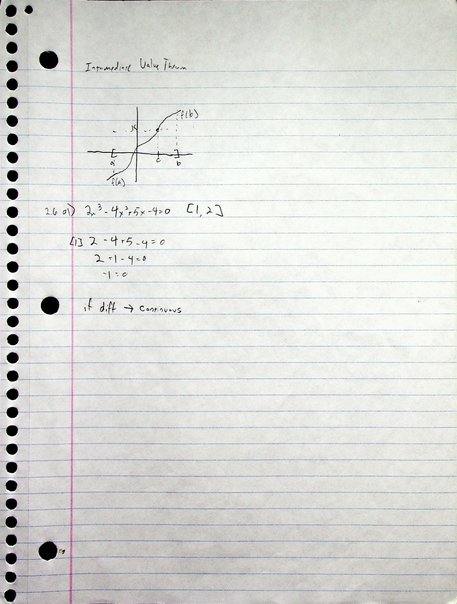 Intermediate Value Theorem
f(b)
N
a
c
b
f(a)
26 a) 2x³ - 4x² + 5x - 4 = 0 [1, 2]
[1] 2 - 4 + 5 - 4 = 0
2 + 1 - 4 = 0
-1 = 0
if diff → continuous